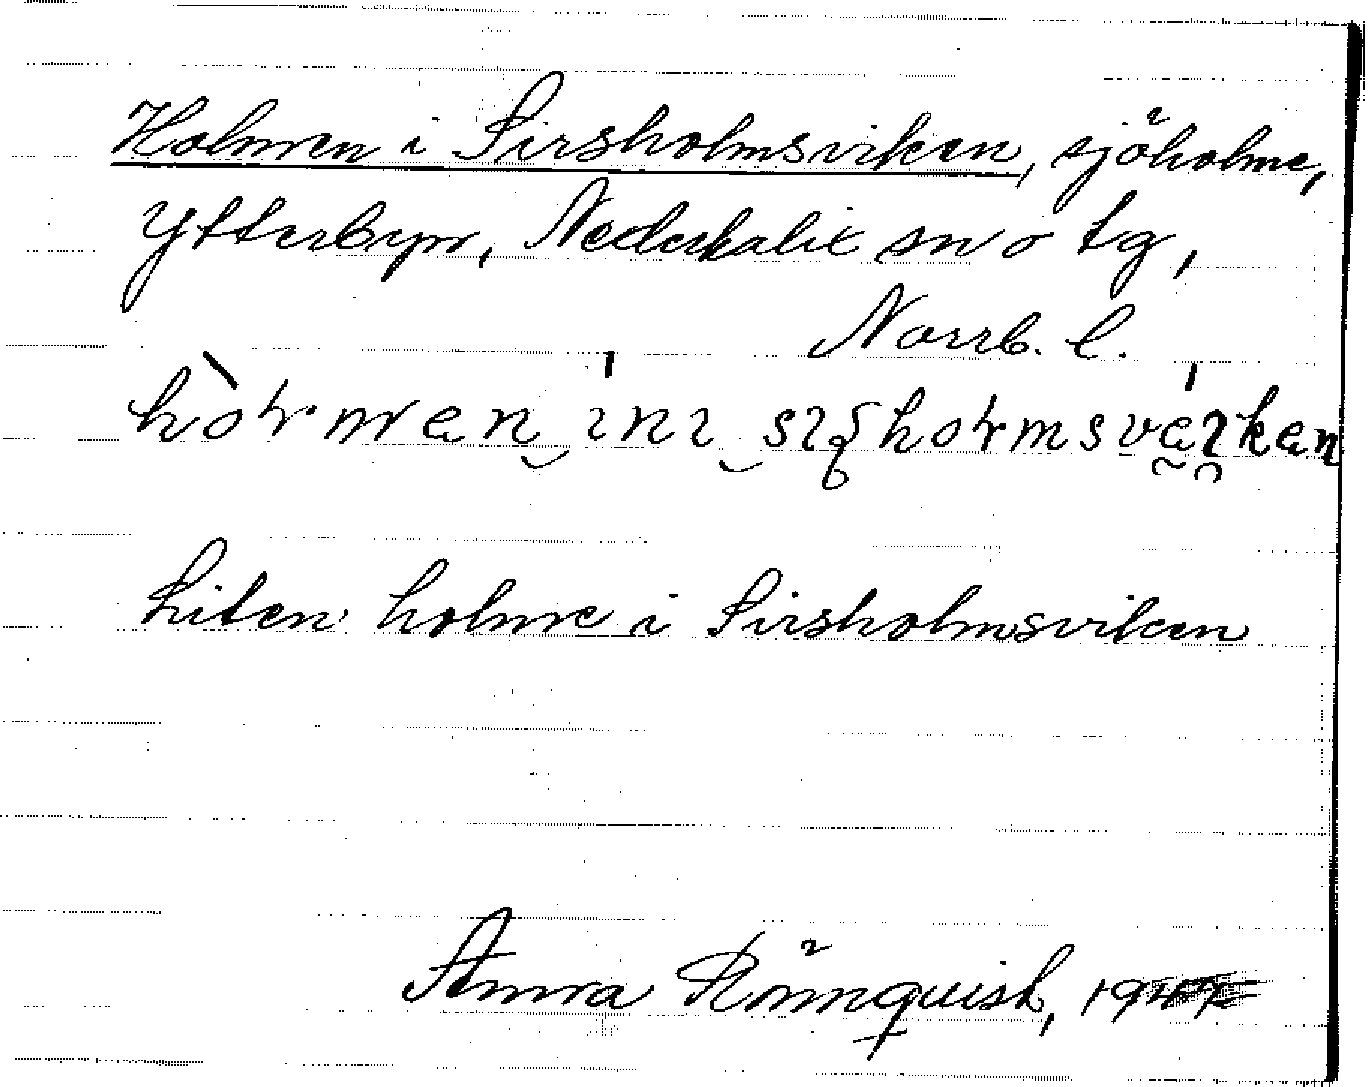 Holmen i Sirsholmsviken, sjöholme,
Ytterbyn, Nederkalix sn o tg,
Norrb. l.
Liten holme i Sirsholmsviken
Anna Rönnquist,